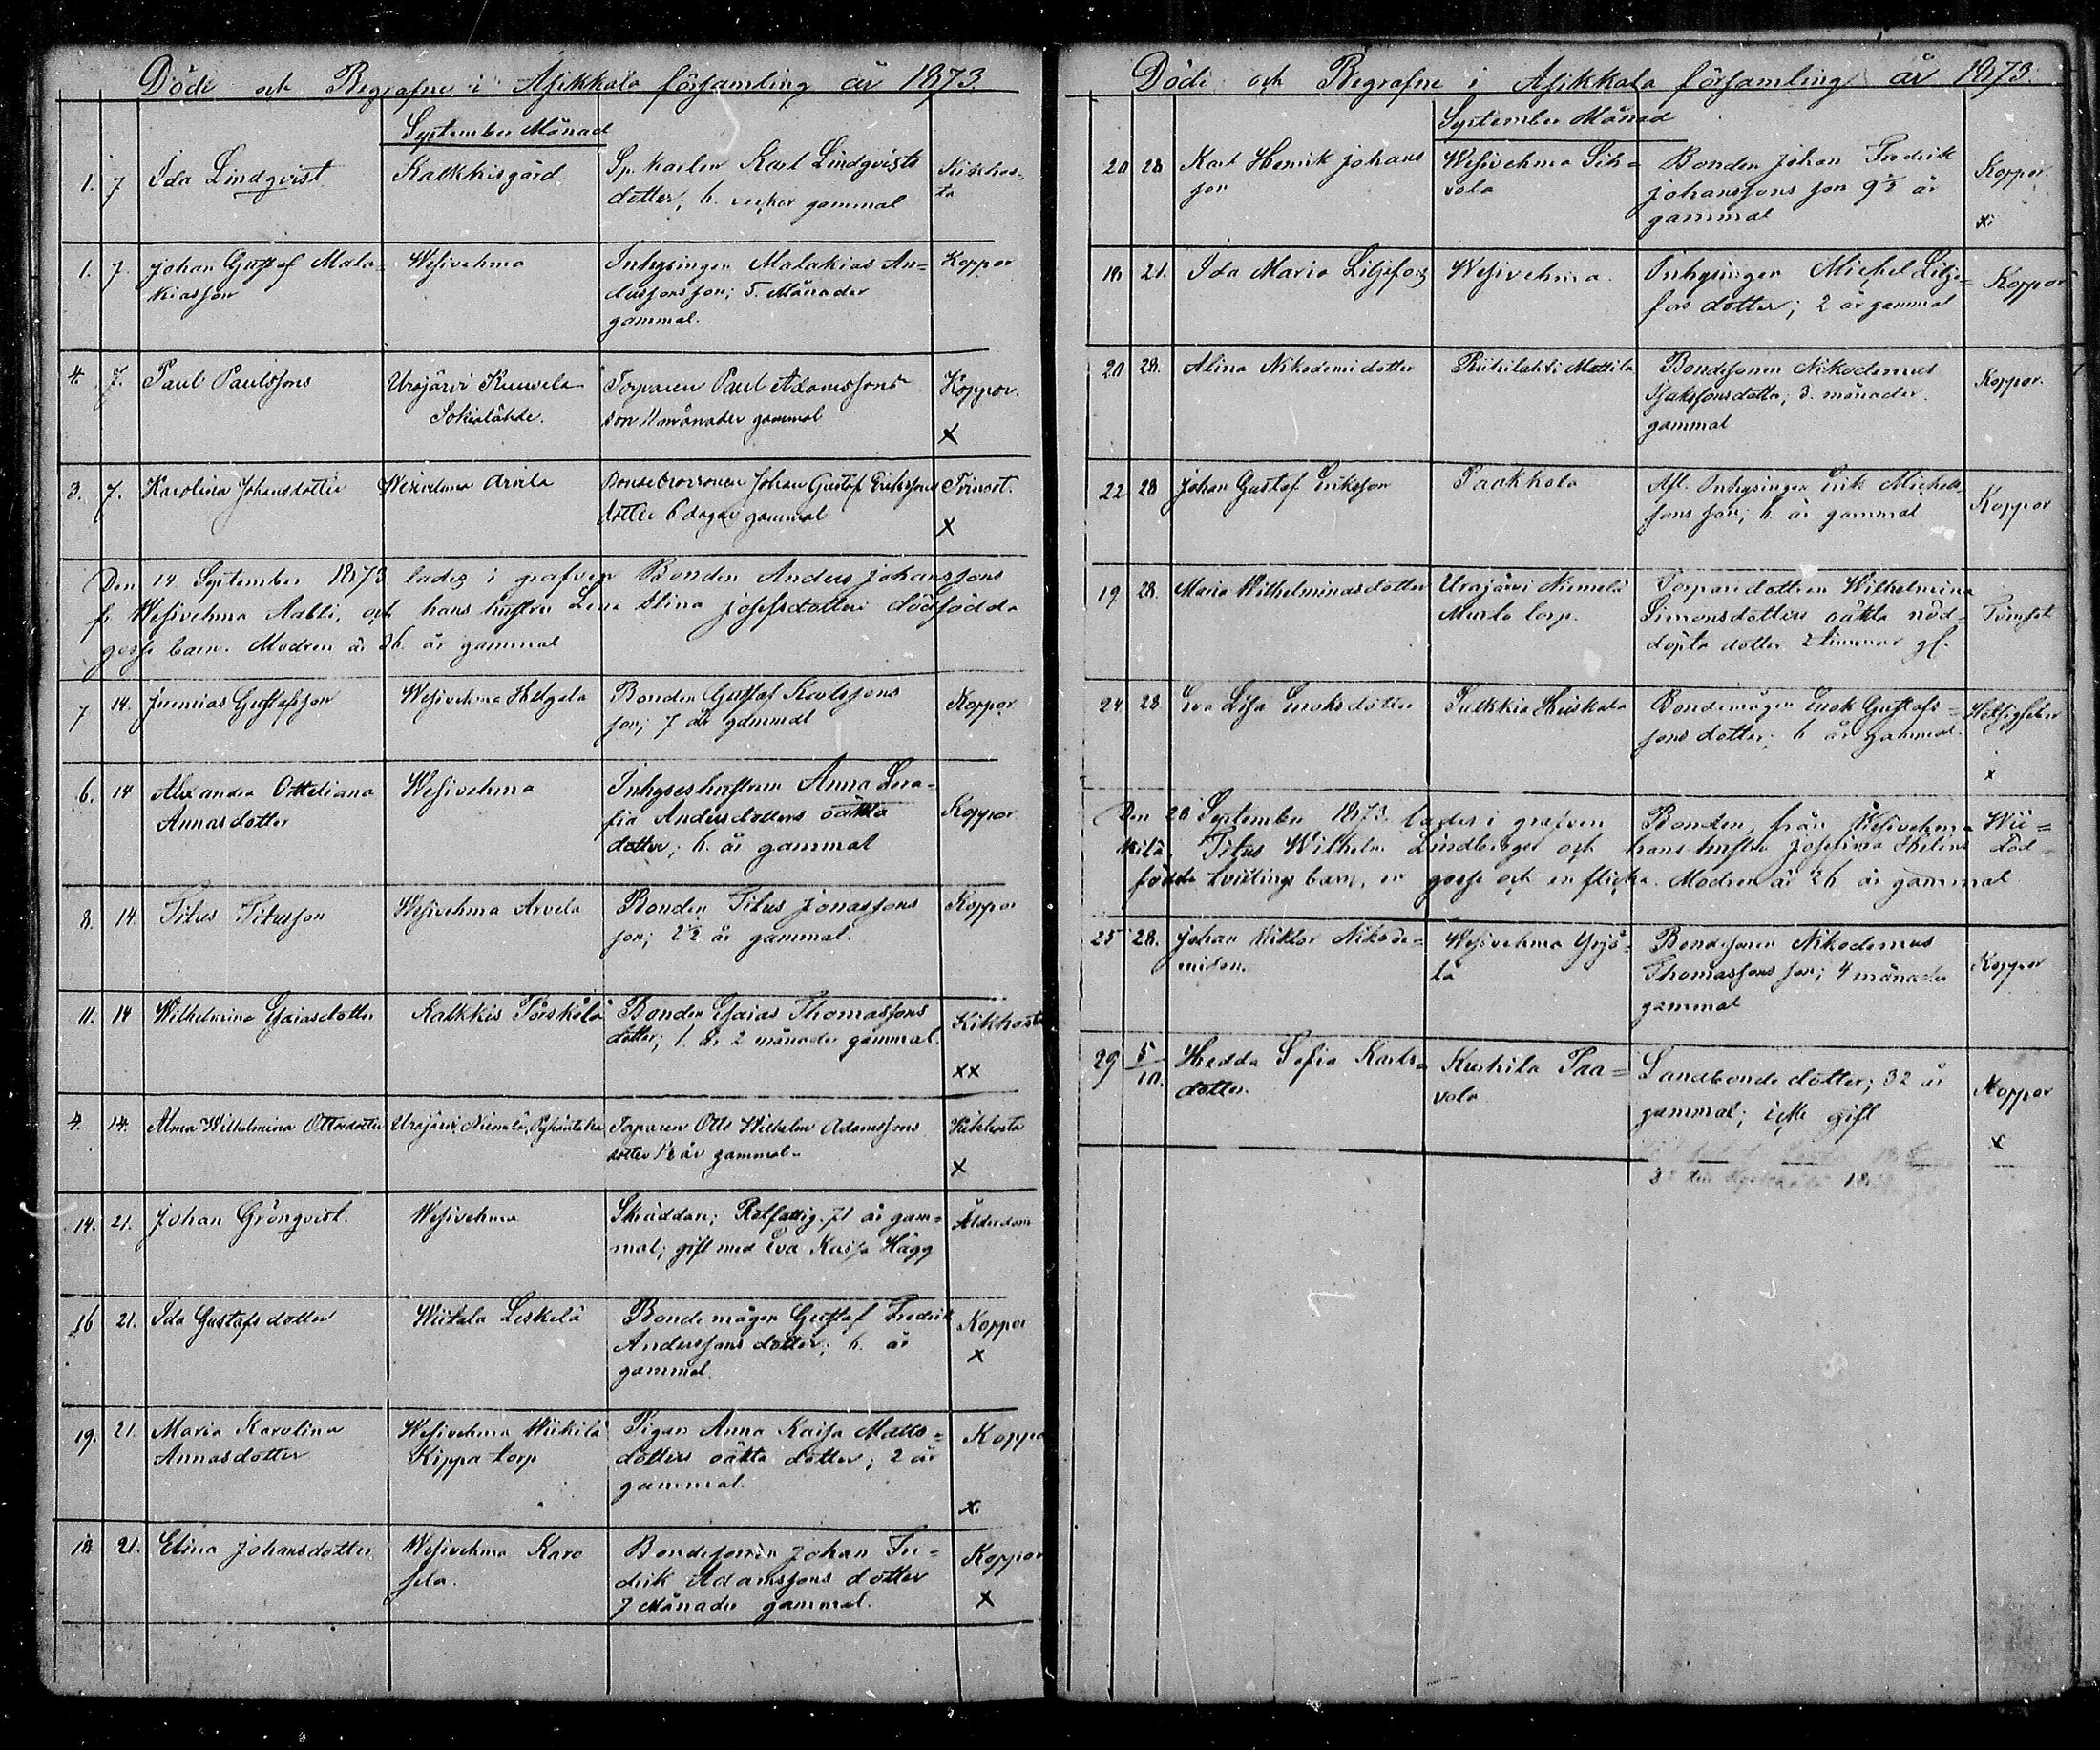 Döde och Begrafne i Asikkala församling år 1873.
September Månad
1. 7 Ida Lindqvist Kalkkisgård Sp. karlen Karl Lindqvists Kikhos=
dotter; 6. veckor gammal ta
1. 7. Johan Gustaf Mala= Wesivehma Inhysingen Malakias An= Koppor
kiasson derssons son; 5. Månader
gammal.
4. 7. Paul Paulssons Urajärvi Kuusela Torparen Paul Adamssons Koppor.
son 11 månader gammal
x
3. 7. Karolina Johansdotter Wesivehma Arvila Johan Gustaf Erikssons
dotter 6 dagar gammal x
Den 14 September 1873 lades i grafven Bonden Anders Johanssons
fr. Wesivehma Aabli, och hans hustru Lena Alina Josefsdotters dödfödda
gosse barn. Modren är 36. år gammal
7 14. Jeremias Gustafsson Wesivehma Helgala Bonden Gustaf Karlssons Koppor
son; 7 år gammal
6. 14 Alexandra Otteliana Wesivehma Inhyseshustrun Anna Sera= Koppor
Annasdotter fia Andersdotters oäkta
dotter; 6. år gammal
8. 14. Titus Titusson Wesivehma Arvela Bonden Titus Jonassons Koppor
son; 2½ år gammal.
11. 14 Wilhelmina Esaiasdotter Kalkkis Pörskölä Bonden Esaias Thomassons Kikhosta
dotter; 1. år 2 månader gammal.
xx
4. 14. Alma Wilhelmina Ottosdotter Urajärvi, Niemelä, Torparen Otto Wilhelm Adamssons Kikhosta
dotter ½ år gammal.
x
14. 21. Johan Grönqvist. Wesivehma Skräddare; Rotfattig. 71 år gam= Ålderdom
mal; gift med Eva Kaisa Hägg
16 21. Ida Gustafsdotter Wiitala Leskelä Bondemågen Gustaf Fredrik Koppor
Anderssons dotter; 6. år x
gammal.
19. 21. Maria Karolina Wesivehma Wiikilä Pigan Anna Kaisa Matts= Koppor
Annasdotter Kippa torp dotters oäkta dotter; 2 år
gammal.
x.
18 21. Elina Johansdotter Wesivehma Karo Bondesonen Johan Fre= Koppor
sela. drik Adamssons dotter
7 Månader gammal. x
Döde och Begrafne i Asikkala församling år 1873.
September Månad
20 28 Karl Henrik Johans Wesivehma Sih= Bonden Johan Fredrik Koppor.
son vola Johanssons son 9½ år
gammal x.
18 21. Ida Maria Liljefors Wesivehma. Inhysingen Michel Lilje= Koppor
fors dotter; 2 år gammal
20 28. Alina Nikodemidotter Riihilahti Mattila Bondesonen Nikodemus Koppor.
Isakssons dotter; 3. månader
gammal
22 28 Johan Gustaf Eriksson Paakkola Afl. Inhysingen Erik Michels= Koppor
sons son; 6. år gammal
19. 28. Maria Wilhelminasdotter Urajärvi Niemelä Torparedottren Wilhelmina
Murto torp. Simonsdotters oäkta nöd=
döpta dotter 2 timmar gl.
24 28 Eva Lisa Enoksdotter Pulkkis Heiskala Bondemågen Enok Gustafs= Hetsigfeber
sons dotter; 6 år gammal.
x
Den 28 September 1873. lades i grafven Bonden, från Wesivehma Wii=
kilä. Titus Wilhelm Lindberger och hans hustru Josefina Helins död=
födda tvillinge barn, en gosse och en flicka. Modren är 26 år gammal
25 28. Johan Wiktor Nikode= Wesivehma Yrjö= Bondesonen Nikodemus Koppor
mison. lä Thomassons son; 4 månader
gammal
29 5/10. Hedda Sofia Karls= Kurhila Paa= Landbonde dotter; 32 år Koppor
dotter. vola gammal; icke gift
x